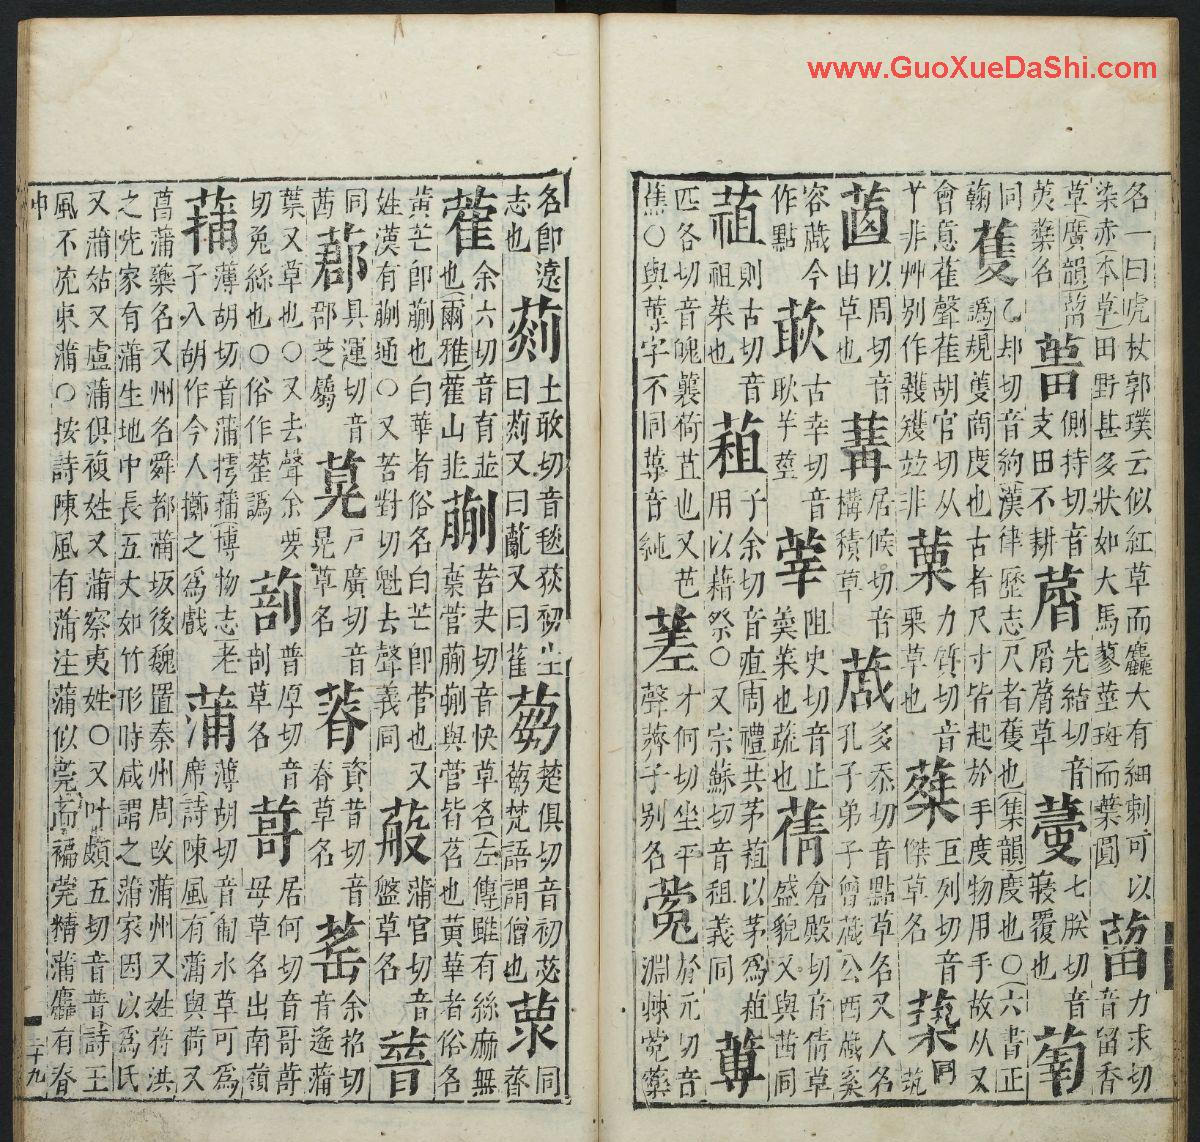 名一曰虎杖郭璞云似紅草而麤大有細刺可以
染赤(本草)田野甚多狀如大馬蓼莖斑而葉圓
蒥 力求切音留香
草(廣韻)蒥荑藥名
葘 側持切音支田不耕
先結切音屑屑草
七朕切音寑覆也
萄
同翰
蒦 乙却切音約(漢律歷志)尺者蒦也(集韻)度也○(六書正
譌)規蒦商度也古者尺寸皆起於手度物用手故从又
會意萑聲萑胡官切从
丫非艸別作彠矱竝非
力質切音栗草也
巨列切音傑草名
同筑
莤 以周切音由草也
居候切音構積草
蒧 多忝切音點草名又人名
孔子弟子曾蒧公西蒧奚
容蒧今作點
古幸切音耿芋莖
阻史切音止羹菜也蔬也
蒨 倉殿切音倩草盛貌又與茜同
則古切音祖菜也
蒩 子余切音疽(周禮)共茅蒩以茅爲蒩
用以藉祭○又宗蘇切音租義同
蒪
匹各切音魄蘘荷苴也又芭
蕉○與蓴字不同蓴音純
蒫 才何切坐平聲薺子別名
蒬 於元切音淵棘蒬藥
名卽遠志也
土敢切音毯荻初生
曰菼又曰薍又曰萑
蒭 楚俱切音初苾蒭梵語謂僧也
蒮 余六切音育韭也(爾雅)蒮山韭
蒯 苦夬切音快草名(左傳)雖有絲麻無
棄菅蒯蒯與菅皆茖也黄華者俗名
黄芒卽蒯也白華者俗名白芒卽菅也又
姓漢有蒯通○又苦對切魁去聲義同
蒰 蒲官切音盤草名
同茜
具運切音郡芝屬
戸廣切音晃草名
資昔切音脊草名
余招切音遙蒲
葉又草也○又去聲余要
切兔絲也○俗作䔄譌
普厚切音剖草名
居何切音哥蒄
母草名出南嶺
薄胡切音蒲摴蒱(博物志)老
子入胡作今人擲之爲戲
蒲 薄胡切音匍水草可爲
席(詩陳風)有蒲與荷又
菖蒲藥名又州名舜都蒲坂後魏置秦州周改蒲州又姓苻洪
之先家有蒲生地中長五丈如竹形時咸謂之蒲家因以爲氏
又蒲姑又盧蒲俱複姓又蒲察夷姓○又叶頗五切音普(詩王
風)不流束蒲○按詩陳風有蒲注蒲似莞而褊莞精蒲麤有脊
中
二十九
www.GuoXueDaShi.com